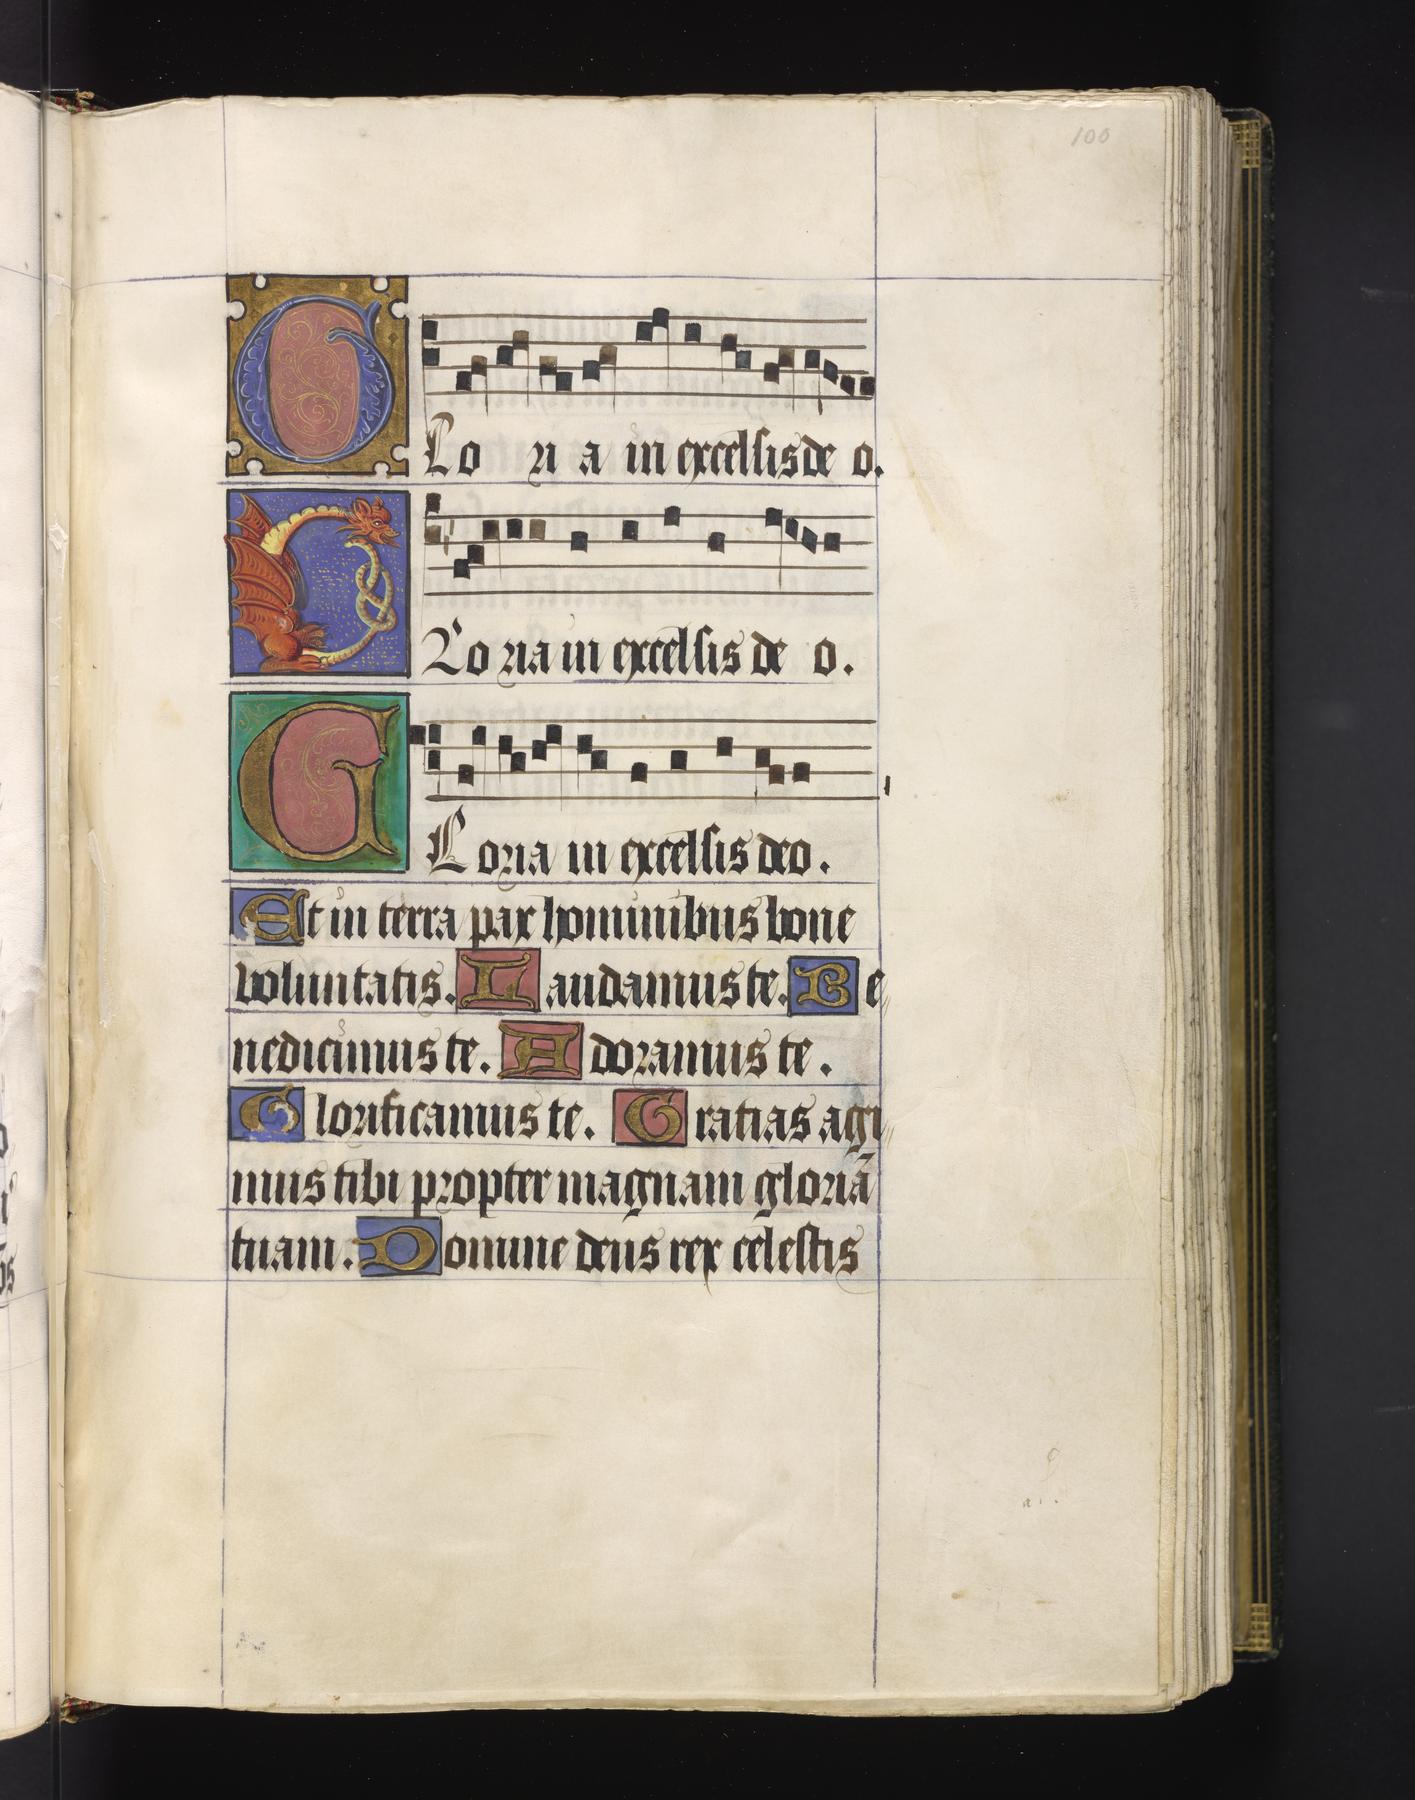 100
GLo ri a in excelsis de o.
GLo ria in excelsis de o.
GLoria in excelsis deo.
Et in terra pax hominibus bone
voluntatis. Laudamus te. Be
nedicimus te. Adoramus te.
Glorificamus te. Gratias agi
mus tibi propter magnam gloriā
tuam. Domine deus rex celestis